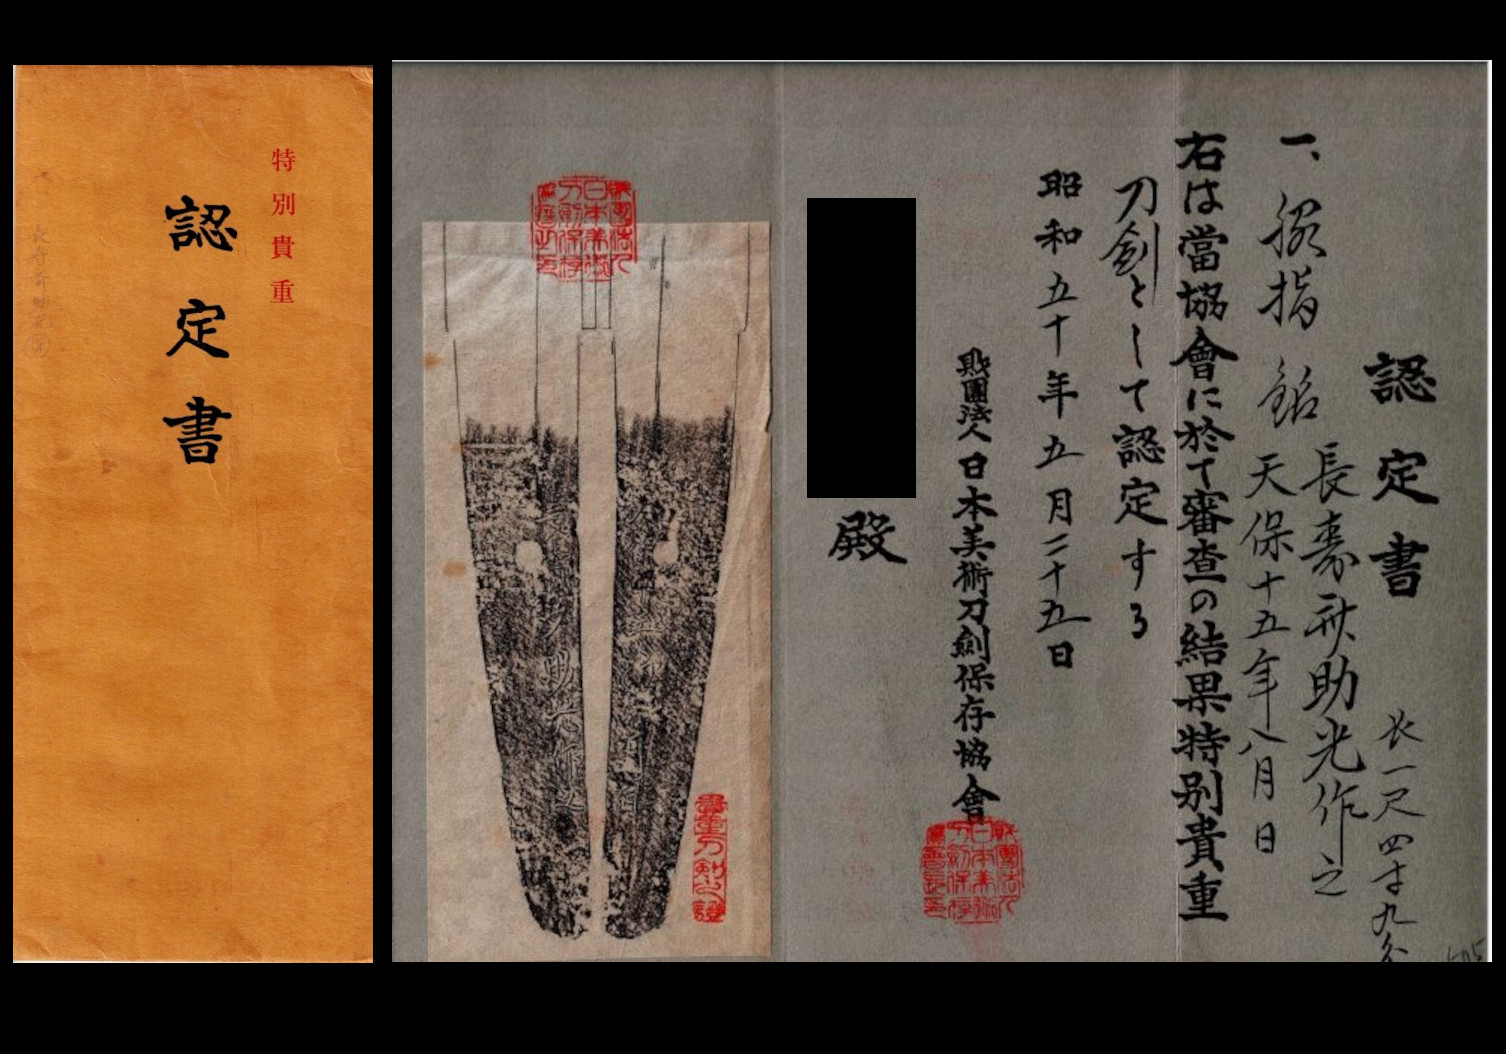 特別貴重
認定書
認定書
長一尺四寸九分
一、脇指 銘
長寿斎助光作之
天保十五年八月日
右は當協會に於て審査の結果特別貴重
刀剣として認定する
昭和五十年五月二十五日
財團法人日本美術刀劍保存協會
殿